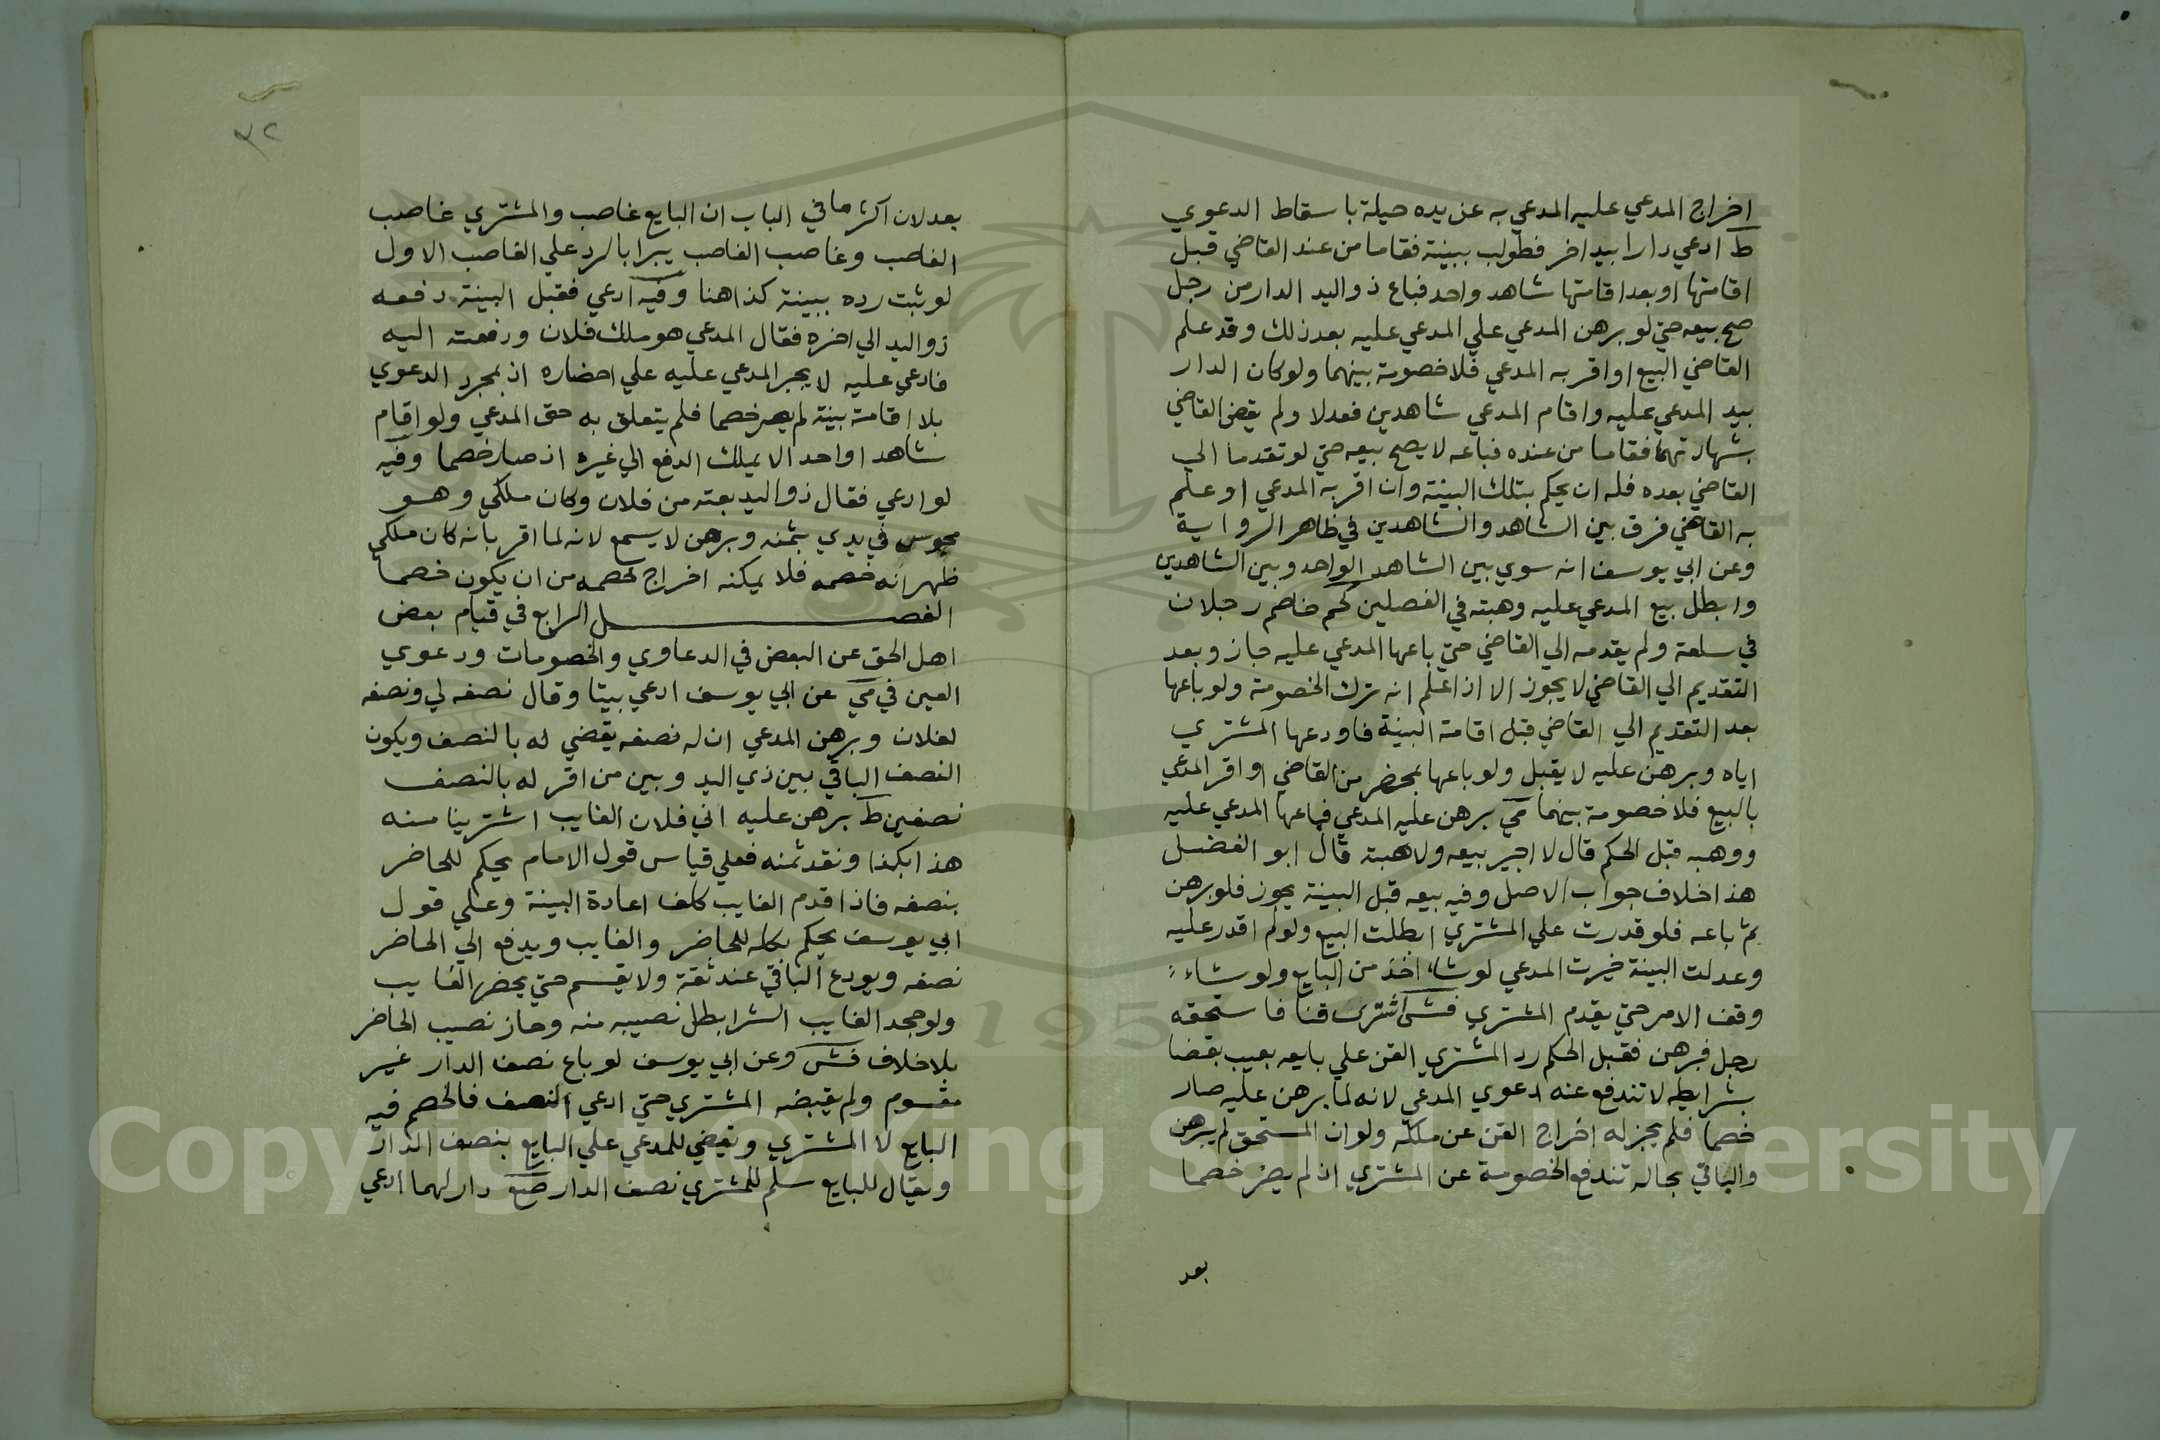 اخراج المدعي عليه المدعي به عن يده حيلة باسقاط الدعوي
ط ادعي دارا بيد اخر فطولب ببينة فقاما من عند القاضي قبل
اقامتها او بعد اقامتها شاهد واحد فباع ذو اليد الدار من رجل
صح بيعه حتي لو برهن المدعي علي المدعي عليه بعد ذلك وقد علم
القاضي البيع او اقر به المدعي فلا خصومة بينهما ولو كان الدار
بيد المدعي عليه واقام المدعي شاهدين فعدلا ولم يقض القاضي
بشهادتهما فقاما من عنده فباعه لا يصح بيعه حتي لو تقدما الي
القاضي بعده فله ان يحكم بتلك البينة وان اقر به المدعي او علم
به القاضي فرق بين الشاهد والشاهدين في ظاهر الرواية
وعن ابي يوسف انه سوي بين الشاهد الواحد وبين الشاهدين
وابطل بيع المدعي عليه وهبته في الفصلين كم خاصم رجلان
في سلعة ولم يقدمه الي القاضي حتي باعها المدعي عليه جاز وبعد
التقديم الي القاضي لا يجوز الا اذا علم انه ترك الخصومة ولو باعها
بعد التقديم الي القاضي قبل اقامة البينة فاودعها المشتري
اياه وبرهن عليه لا يقبل ولو باعها بمحضر من القاضي او اقر المدعي
بالبيع فلا خصومة بينهما مي برهن عليه المدعي فباعها المدعي عليه
ووهبه قبل الحكم قال لا اجيز بيعه ولا هبته قال ابو الفضل
هذا خلاف جواب الاصل وفيه بيعه قبل البينة يجوز فلو برهن
ثم باعه فلو قدرت علي المشتري ابطلت البيع ولو لم اقدر عليه
وعدلت البينة خيرت المدعي لو شاء اخذ من البايع ولو شاء
وقف الامر حتي يقدم المشتري فش اشتري قنا فاستحقه
رجل فبرهن فقبل الحكم رد المشتري القن علي بايعه بعيب بقضا
بشرايطه لا تندفع عنه دعوي المدعي لانه لما برهن عليه صار
خصما فلم يجز له اخراج القن عن ملكه ولو ان المستحق لم يبرهن
والباقي بحاله تندفع الخصومة عن المشتري اذ لم يصر خصما
بعد
٣٢
بعد لان اكثر ما في الباب ان البايع غاصب والمشتري غاصب
الغاصب وغاصب الغاصب يبرا بالرد علي الغاصب الاول
لو ثبت رده ببينة كذا هنا وفيه ادعي فقبل البينة دفعه
ذو اليد الي اخره فقال المدعي هو ملك فلان ودفعته اليه
فادعي عليه لا يجبر المدعي عليه علي احضاره اذ بمجرد الدعوي
بلا اقامة بينة لم يصر خصما فلم يتعلق به حق المدعي ولو اقام
شاهدا واحدا لا يملك الدفع الي غيره اذ صار خصما وفيه
لو ادعي فقال ذو اليد بعته من فلان وكان ملكي وهو
محبوس في يدي بثمنه وبرهن لا يسمع لانه لما اقر بانه كان ملكي
ظهر انه خصمه فلا يمكنه اخراج خصمه من ان يكون خصما
الفصل الرابع في قيام بعض
اهل الحق عن البعض في الدعاوي والخصومات ودعوي
العين في مي عن ابي يوسف ادعي بيتا وقال نصفه لي ونصفه
لفلان وبرهن المدعي ان له نصفه يقضي له بالنصف ويكون
النصف الباقي بين ذي اليد وبين من اقر له بالنصف
نصفين ط برهن عليه اني فلان الغايب اشترينا منه
هذا بكذا ونقد ثمنه فعلي قياس قول الامام يحكم للحاضر
بنصفه فاذا قدم الغايب كلف اعادة البينة وعلي قول
ابي يوسف يحكم بكله للحاضر والغايب ويدفع الي الحاضر
نصفه ويودع الباقي عند ثقة ولا يقسم حتي يحضر الغايب
ولو جحد الغايب الشرا بطل نصيبه منه وجاز نصيب الحاضر
بلا خلاف فش وعن ابي يوسف لو باع نصف الدار غير
مقسوم ولم يقبضه المشتري حتي ادعي النصف فالخصم فيه
البايع لا المشتري ويقضي للمدعي علي البايع بنصف الدار
ويقال للبايع سلم للمشتري نصف الدار صع دار لهما ادعي
Copyright © King Saud University
195